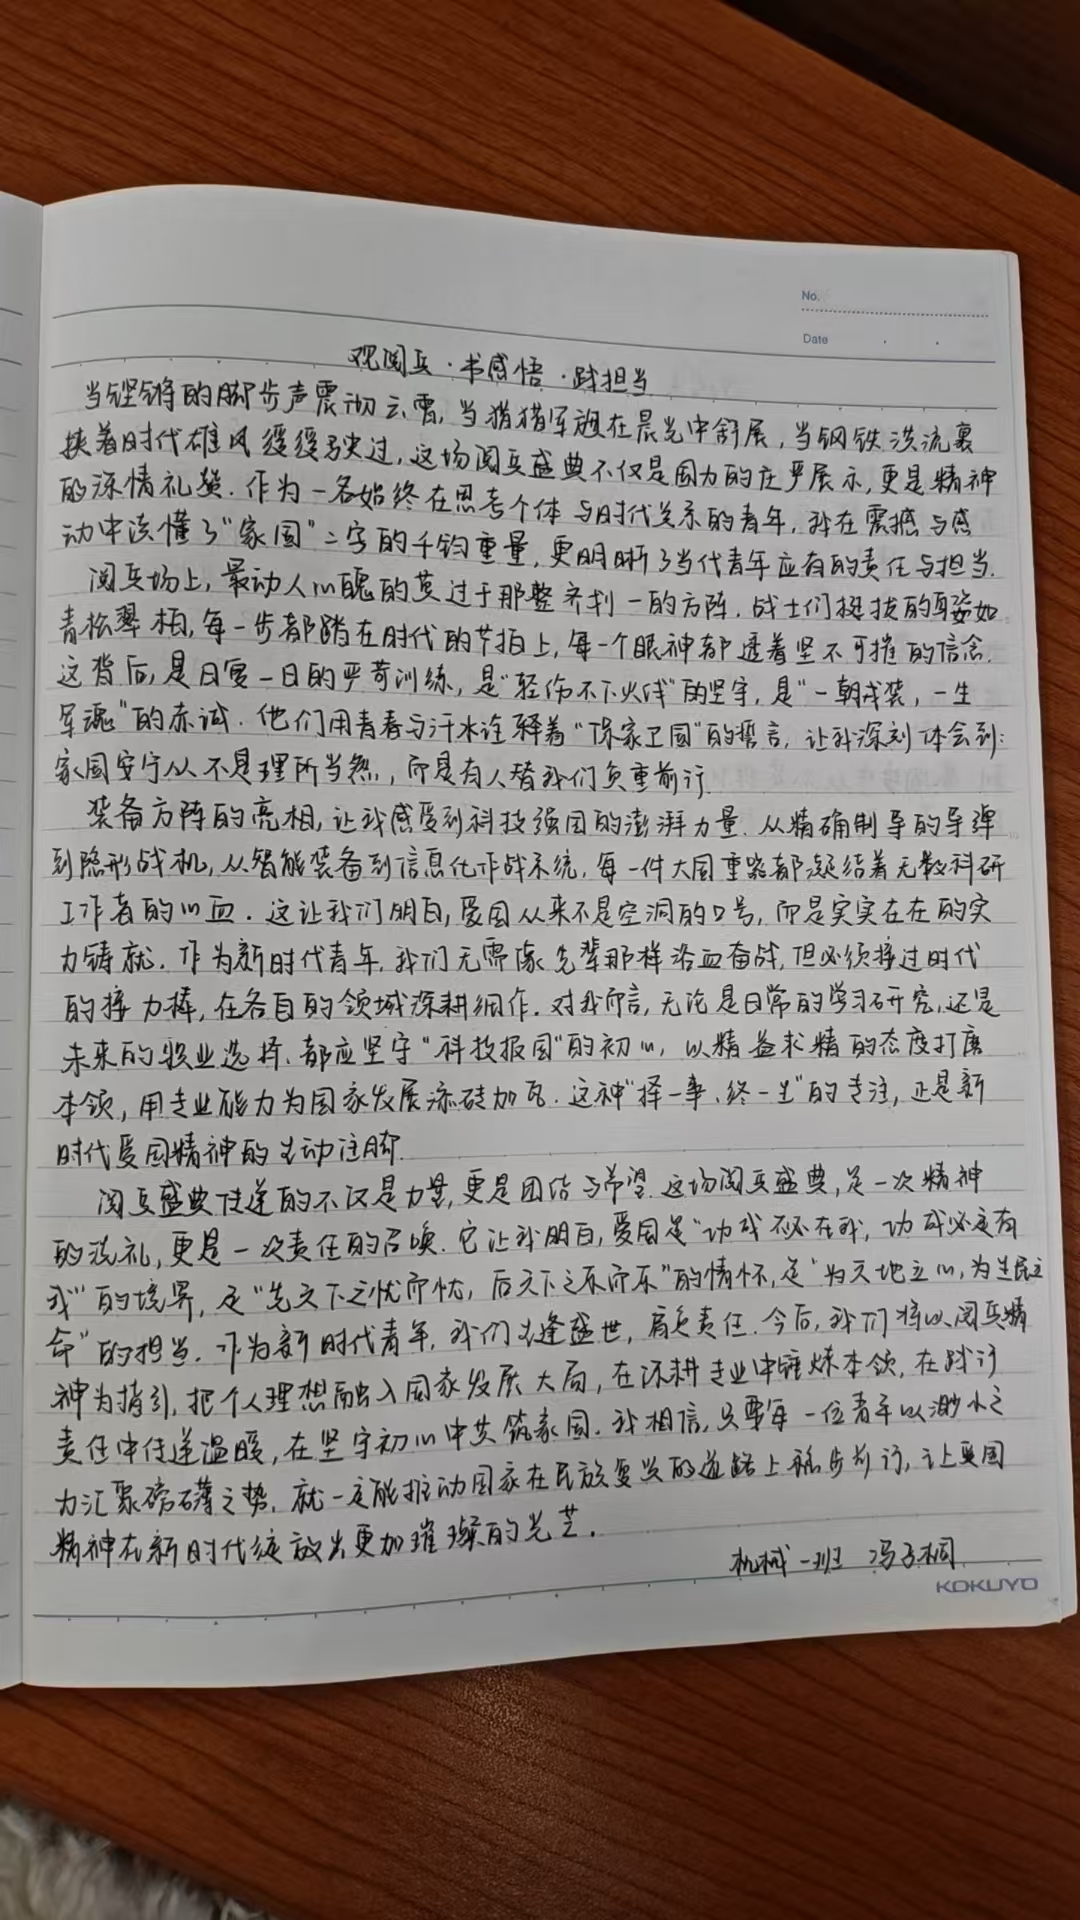 No.
Date
观阅兵·书感悟·践担当
当铿锵的脚步声震彻云霄,当猎猎军旗在晨光中舒展,当钢铁洪流裹
挟着时代雄风缓缓驶过,这场阅兵盛典不仅是国力的庄严展示,更是精神
的深情礼赞.作为一名始终在思考个体与时代关系的青年,我在震撼与感
动中读懂了“家国”二字的千钧重量,更明晰了当代青年应有的责任与担当.
阅兵场上,最动人心魄的莫过于那整齐划一的方阵.战士们挺拔的身姿如
青松翠柏,每一步都踏在时代的节拍上,每一个眼神都透着坚不可摧的信念.
这背后,是日复一日的严苛训练,是“轻伤不下火线”的坚守,是“一朝戎装,一生
军魂”的赤诚.他们用青春与汗水诠释着“保家卫国”的誓言,让我深刻体会到:
家国安宁从不是理所当然,而是有人替我们负重前行.
装备方阵的亮相,让我感受到科技强国的澎湃力量.从精确制导的导弹
到隐形战机,从智能装备到信息化作战系统,每一件大国重器都凝结着无数科研
工作者的心血.这让我们明白,爱国从来不是空洞的口号,而是实实在在的实
力铸就.作为新时代青年,我们无需像先辈那样浴血奋战,但必须接过时代
的接力棒,在各自的领域深耕细作.对我而言,无论是日常的学习研究,还是
未来的职业选择,都应坚守“科技报国”的初心,以精益求精的态度打磨
本领,用专业能力为国家发展添砖加瓦.这种“择一事、终一生”的专注,正是新
时代爱国精神的生动注脚.
阅兵盛典传递的不仅是力量,更是团结与希望.这场阅兵盛典,是一次精神
的洗礼,更是一次责任的召唤.它让我明白,爱国是“功成不必在我,功成必定有
我”的境界,是“先天下之忧而忧,后天下之乐而乐”的情怀,是“为天地立心,为生民立
命”的担当.作为新时代青年,我们生逢盛世,肩负责任.今后,我们将以阅兵精
神为指引,把个人理想融入国家发展大局,在深耕专业中锤炼本领,在践行
责任中传递温暖,在坚守初心中共筑家国.我相信,只要每一位青年以渺小之
力汇聚磅礴之势,就一定能推动国家在民族复兴的道路上稳步前行,让爱国
精神在新时代绽放出更加璀璨的光芒.
机械一班 冯子桐
KOKUYO